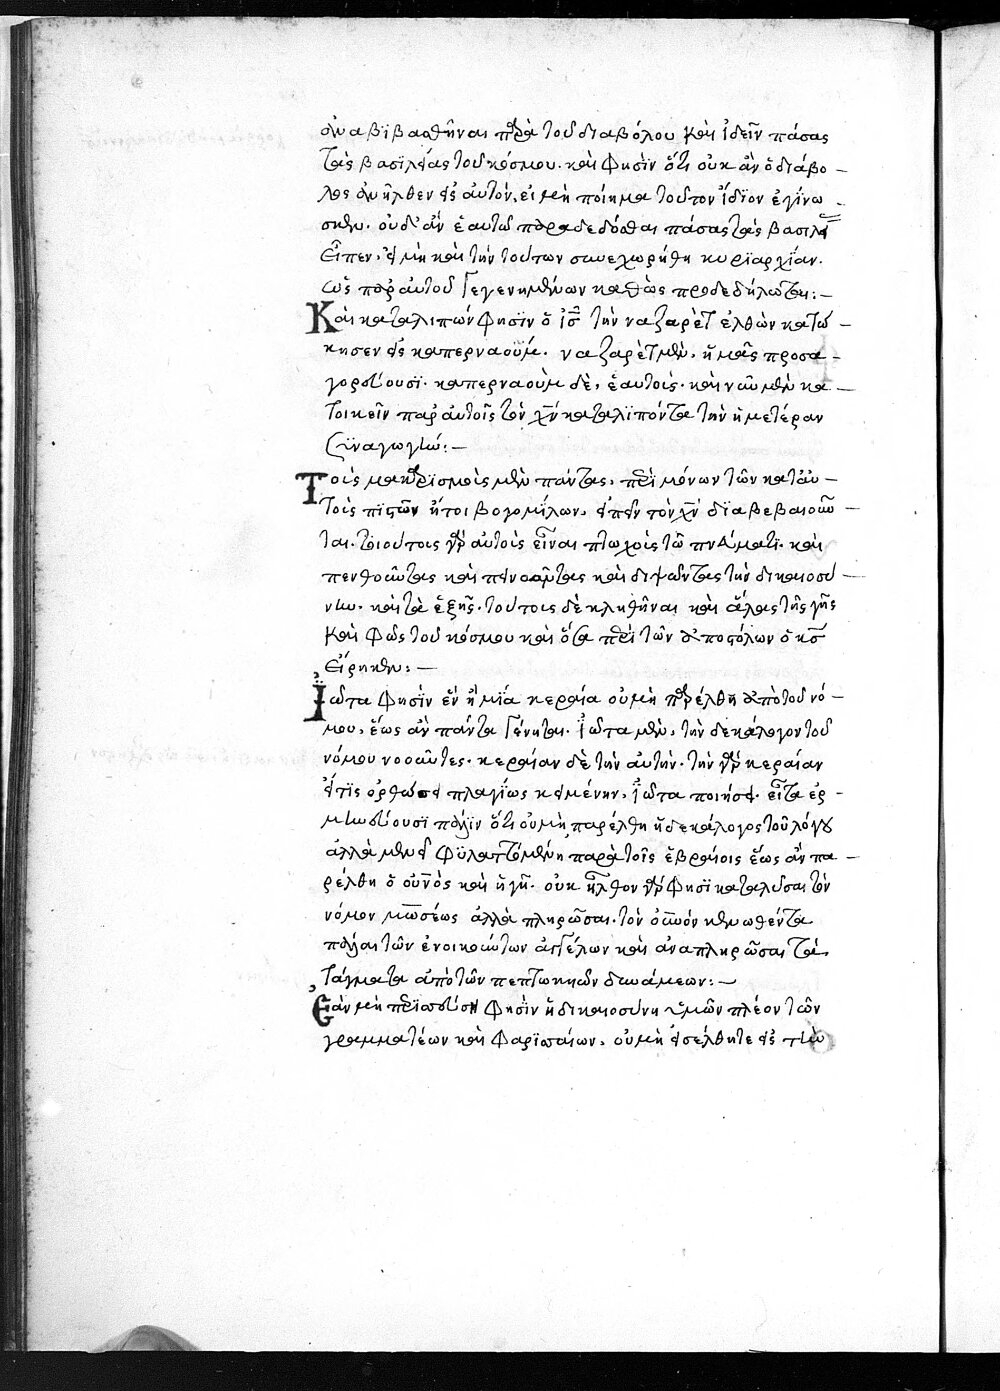 ἀναβιβασθῆναι παρὰ τοῦ διαβόλου καὶ ἰδεῖν πάσας
τὰς βασιλείας τοῦ κόσμου. καὶ φησὶν ὅτι οὐκ ἂν ὁ διάβο-
λος ἀνῆλθεν εἰς αὐτὸν, εἰ μὴ ποίημα τοῦτον ἴδϊον ἐγίνω-
σκεν. οὐδ' ἂν ἑαυτῶ παραδεδόσθαι πάσας τὰς βασιλεί
εἶπεν, εἰ μὴ καὶ τὴν τούτων συνεχωρήθη κυρϊαρχΐαν.
ὡς παρ αὐτοῦ γεγενημένων καθὼς προδεδήλωται:-
Καὶ καταλιπὼν φησὶν ὁ ἰς τὴν ναζαρὲτ ἐλθὼν κατώ-
κησεν εἰς καπερναούμ. ναζαρὲτ μὲν, ἡμᾶς προσα-
γορεύουσϊ. καπερναοὺμ δὲ, ἑαυτοὺς. καὶ νῦν μὲν κα-
τοικεῖν παρ αὐτοῖς τὸν χν καταλϊπόντα τὴν ἡμετέραν
συναγωγήν:-
Τοὺς μακαρϊσμοὺς μὲν πάντας, περὶ μόνων τῶν κατ αὐ-
τοὺς πιστῶν ἤτοι βογομίλων, εἰπεῖν τὸν χν διαβεβαιοῦν
ται. τοιούτους γὰρ αὐτοὺς εἶναι πτωχοὺς τῶ πνεύματι. καὶ
πενθοῦντας καὶ πεινῶντας καὶ διψῶντας τὴν δικαιοσύ-
νην. καὶ τὰ ἑξῆς. τούτους δὲ κληθῆναι καὶ ἅλας τῆς γῆς
καὶ φῶς τοῦ κόσμου καὶ ὅσα περὶ τῶν ἀποστόλων ὁ κς
εἴρηκεν:-
Ἰῶτα φησὶν ἓν ἢ μΐα κεραία οὐ μὴ παρέλθη ἀπὸ τοῦ νό-
μου, ἕως ἂν πάντα γένηται. ἰῶτα μὲν, τὴν δεκάλογον τοῦ
νόμου νοοῦντες. κεραίαν δὲ τὴν αὐτήν. τὴν γὰρ κεραίαν
ὀρθῶς πλαγίως κειμένην, ἰῶτα ποιῆσαι. εἶτα ἑρ-
μηνεύουσι πάλϊν ὅτι οὐ μὴ παρέλθη ἡ δεκάλογος τοῦ λόγου
ἀλλὰ μένει φϋλαττομένη παρὰ τοῖς ἑβραίοις ἕως ἂν πα-
ρέλθη ὁ οὐνὸς καὶ ἡ γῆ. οὐκ ἦλθον γὰρ φησϊ καταλῦσαι τὸν
νόμον μωσέως ἀλλὰ πληρῶσαι. τὸν οὐνὸν κενωθέντα
πάλαι τῶν ἐνοικούντων ἀγγέλων καὶ ἀναπληρῶσαι τὰ
τάγματα ἀπὸ τῶν πεπτωκυιῶν δυνάμεων:-
Ἐὰν μὴ περισσεύση φησὶν ἡ δικαιοσύνη ὑμῶν πλέον τῶν
γραμματέων καὶ φαρϊσαίων, οὐ μὴ εἰσέλθητε εἰς τὴν